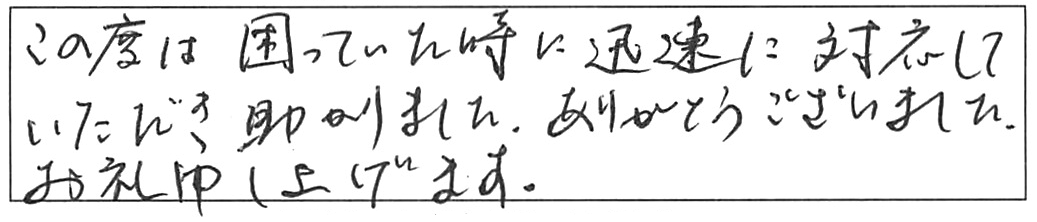 この度は困っていた時に迅速に対応して
いただき助かりました。ありがとうございました。
お礼申し上げます。